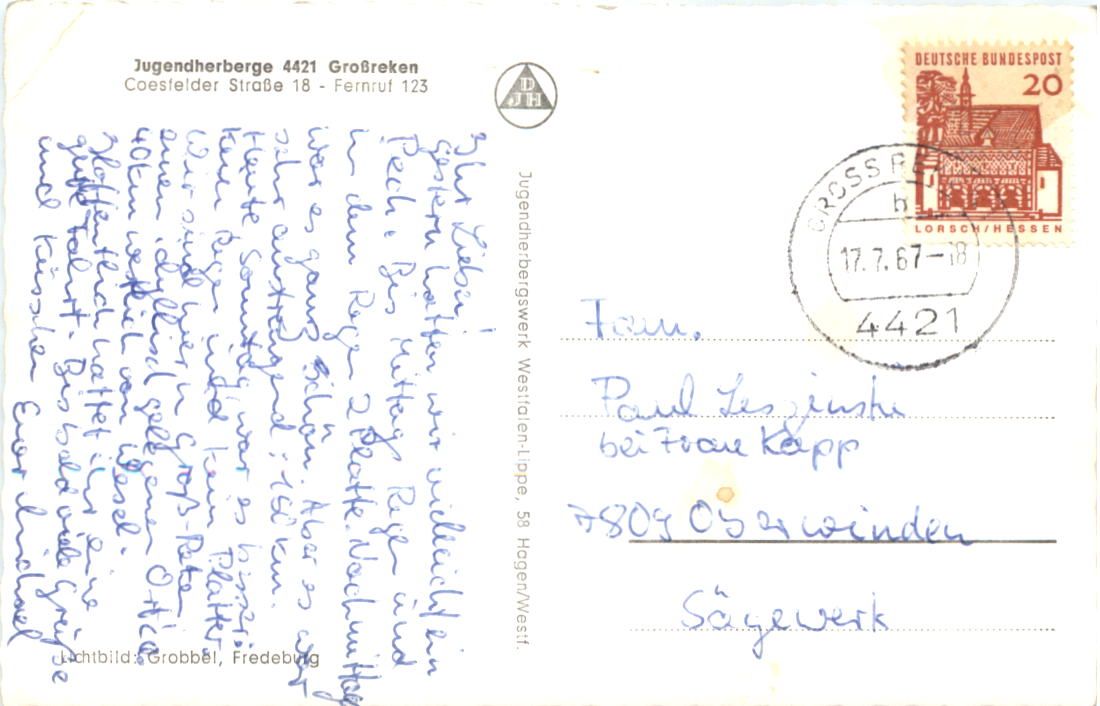 Jugendherberge 4421 Großreken
Coesfelder Straße 18 - Fernruf 123
DJH
Ihr Lieben!
gestern hatten wir vielleicht ein
Pech. Bis Mittag Regen und
in dem Regen 2 Platte. Nachmittag
war es ganz schön. Aber es war
sehr anstrengend: 150 km.
Heute Sonntag war es besser:
kein Regen und kein Platter.
Wir sind hier in Groß-Reken
einen idyllisch gelegenen Ort ca.
40 km westlich von Wesel.
Hoffentlich hattet ihr eine
gute Fahrt. Bis bald viele Grüße
und Küsschen Euer Michael
Lichtbild: Grobbel, Fredeburg
Jugendherbergswerk Westfalen-Lippe, 58 Hagen/Westf.
DEUTSCHE BUNDESPOST
20
LORSCH/HESSEN
GROSS RE
b
17.7.67-18
4421
Fam.
Paul Leszinski
bei Frau Kapp
7809 Oberwinden
Sägewerk